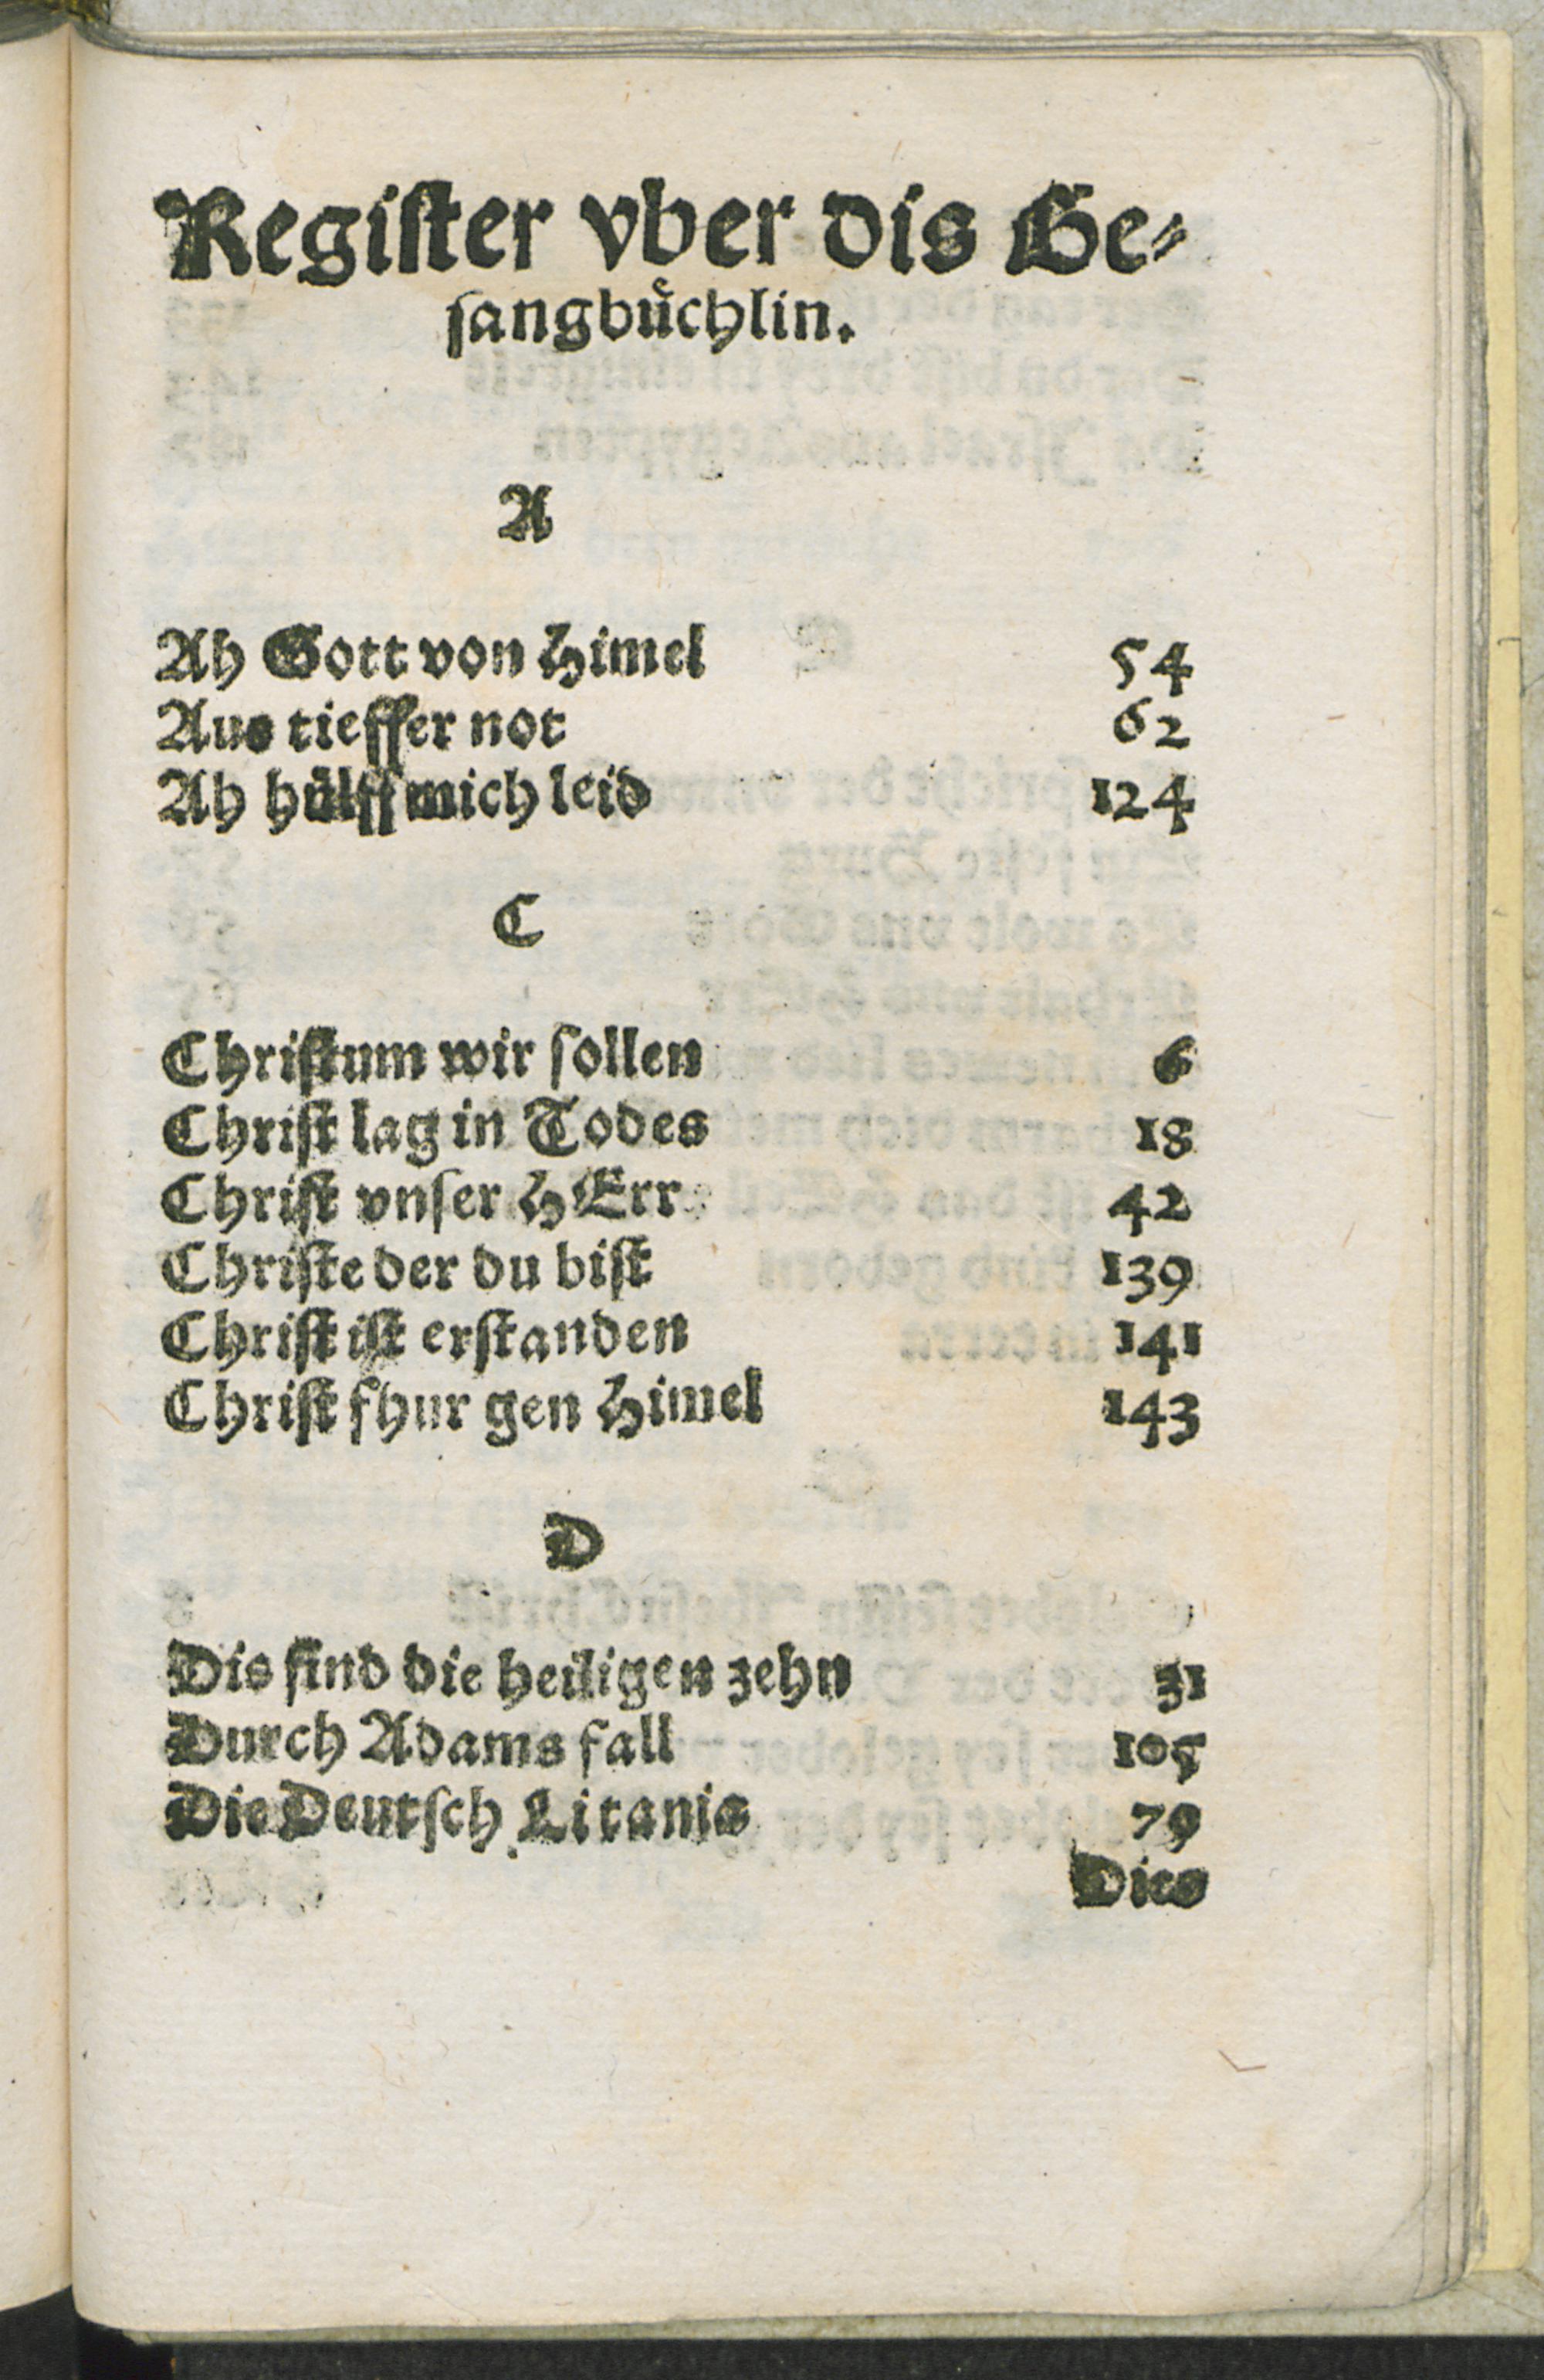 Regiſter vber dis Ge⸗
ſangbuͤchlin.
A
Ah Gott von Himel 54
Aus tieffer not 62
Ah huͤlff mich leid 124
C
Chriſtum wir ſollen 6
Chriſt lag in Todes 18
Chriſt vnſer HErr 42
Chriſte der du biſt 139
Chriſt iſt erſtanden 141
Chriſt fhur gen Himel 143
D
Dis ſind die heiligen zehn 31
Durch Adams fall 105
Die Deutſch Litania 79
Dies